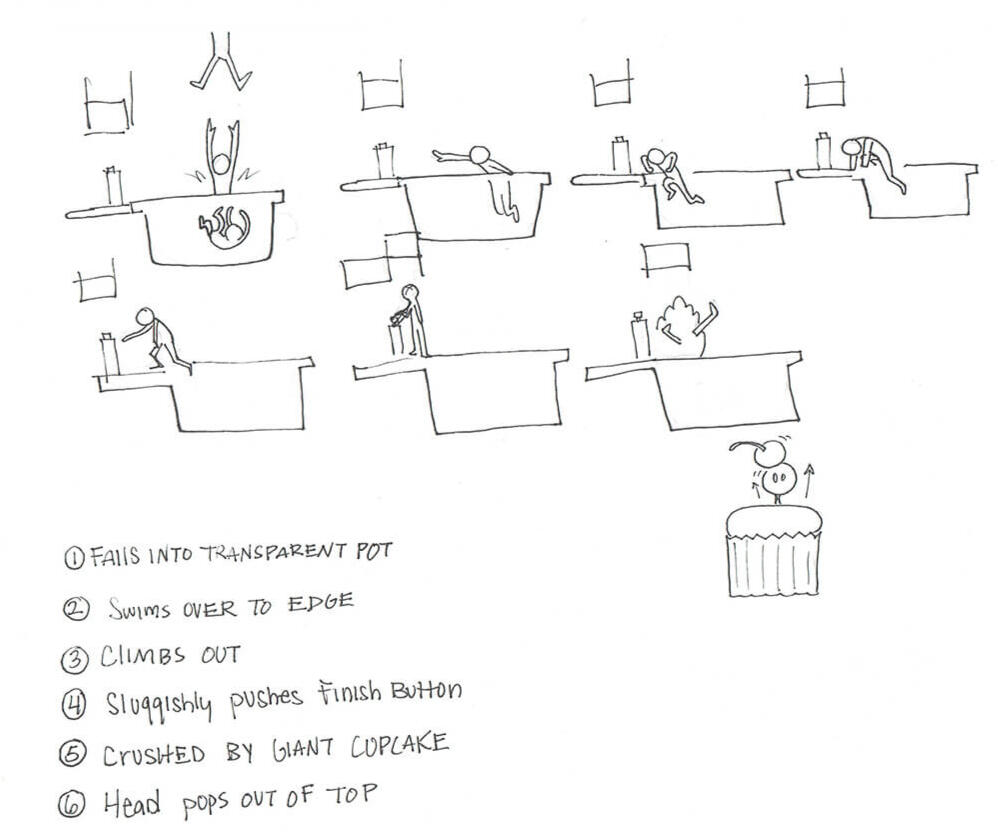 ① FALLS INTO TRANSPARENT POT
② SWIMS OVER TO EDGE
③ CLIMBS OUT
④ Sluggishly pushes Finish BUTTON
⑤ CRUSHED BY GIANT CUPCAKE
⑥ Head pops OUT OF TOP